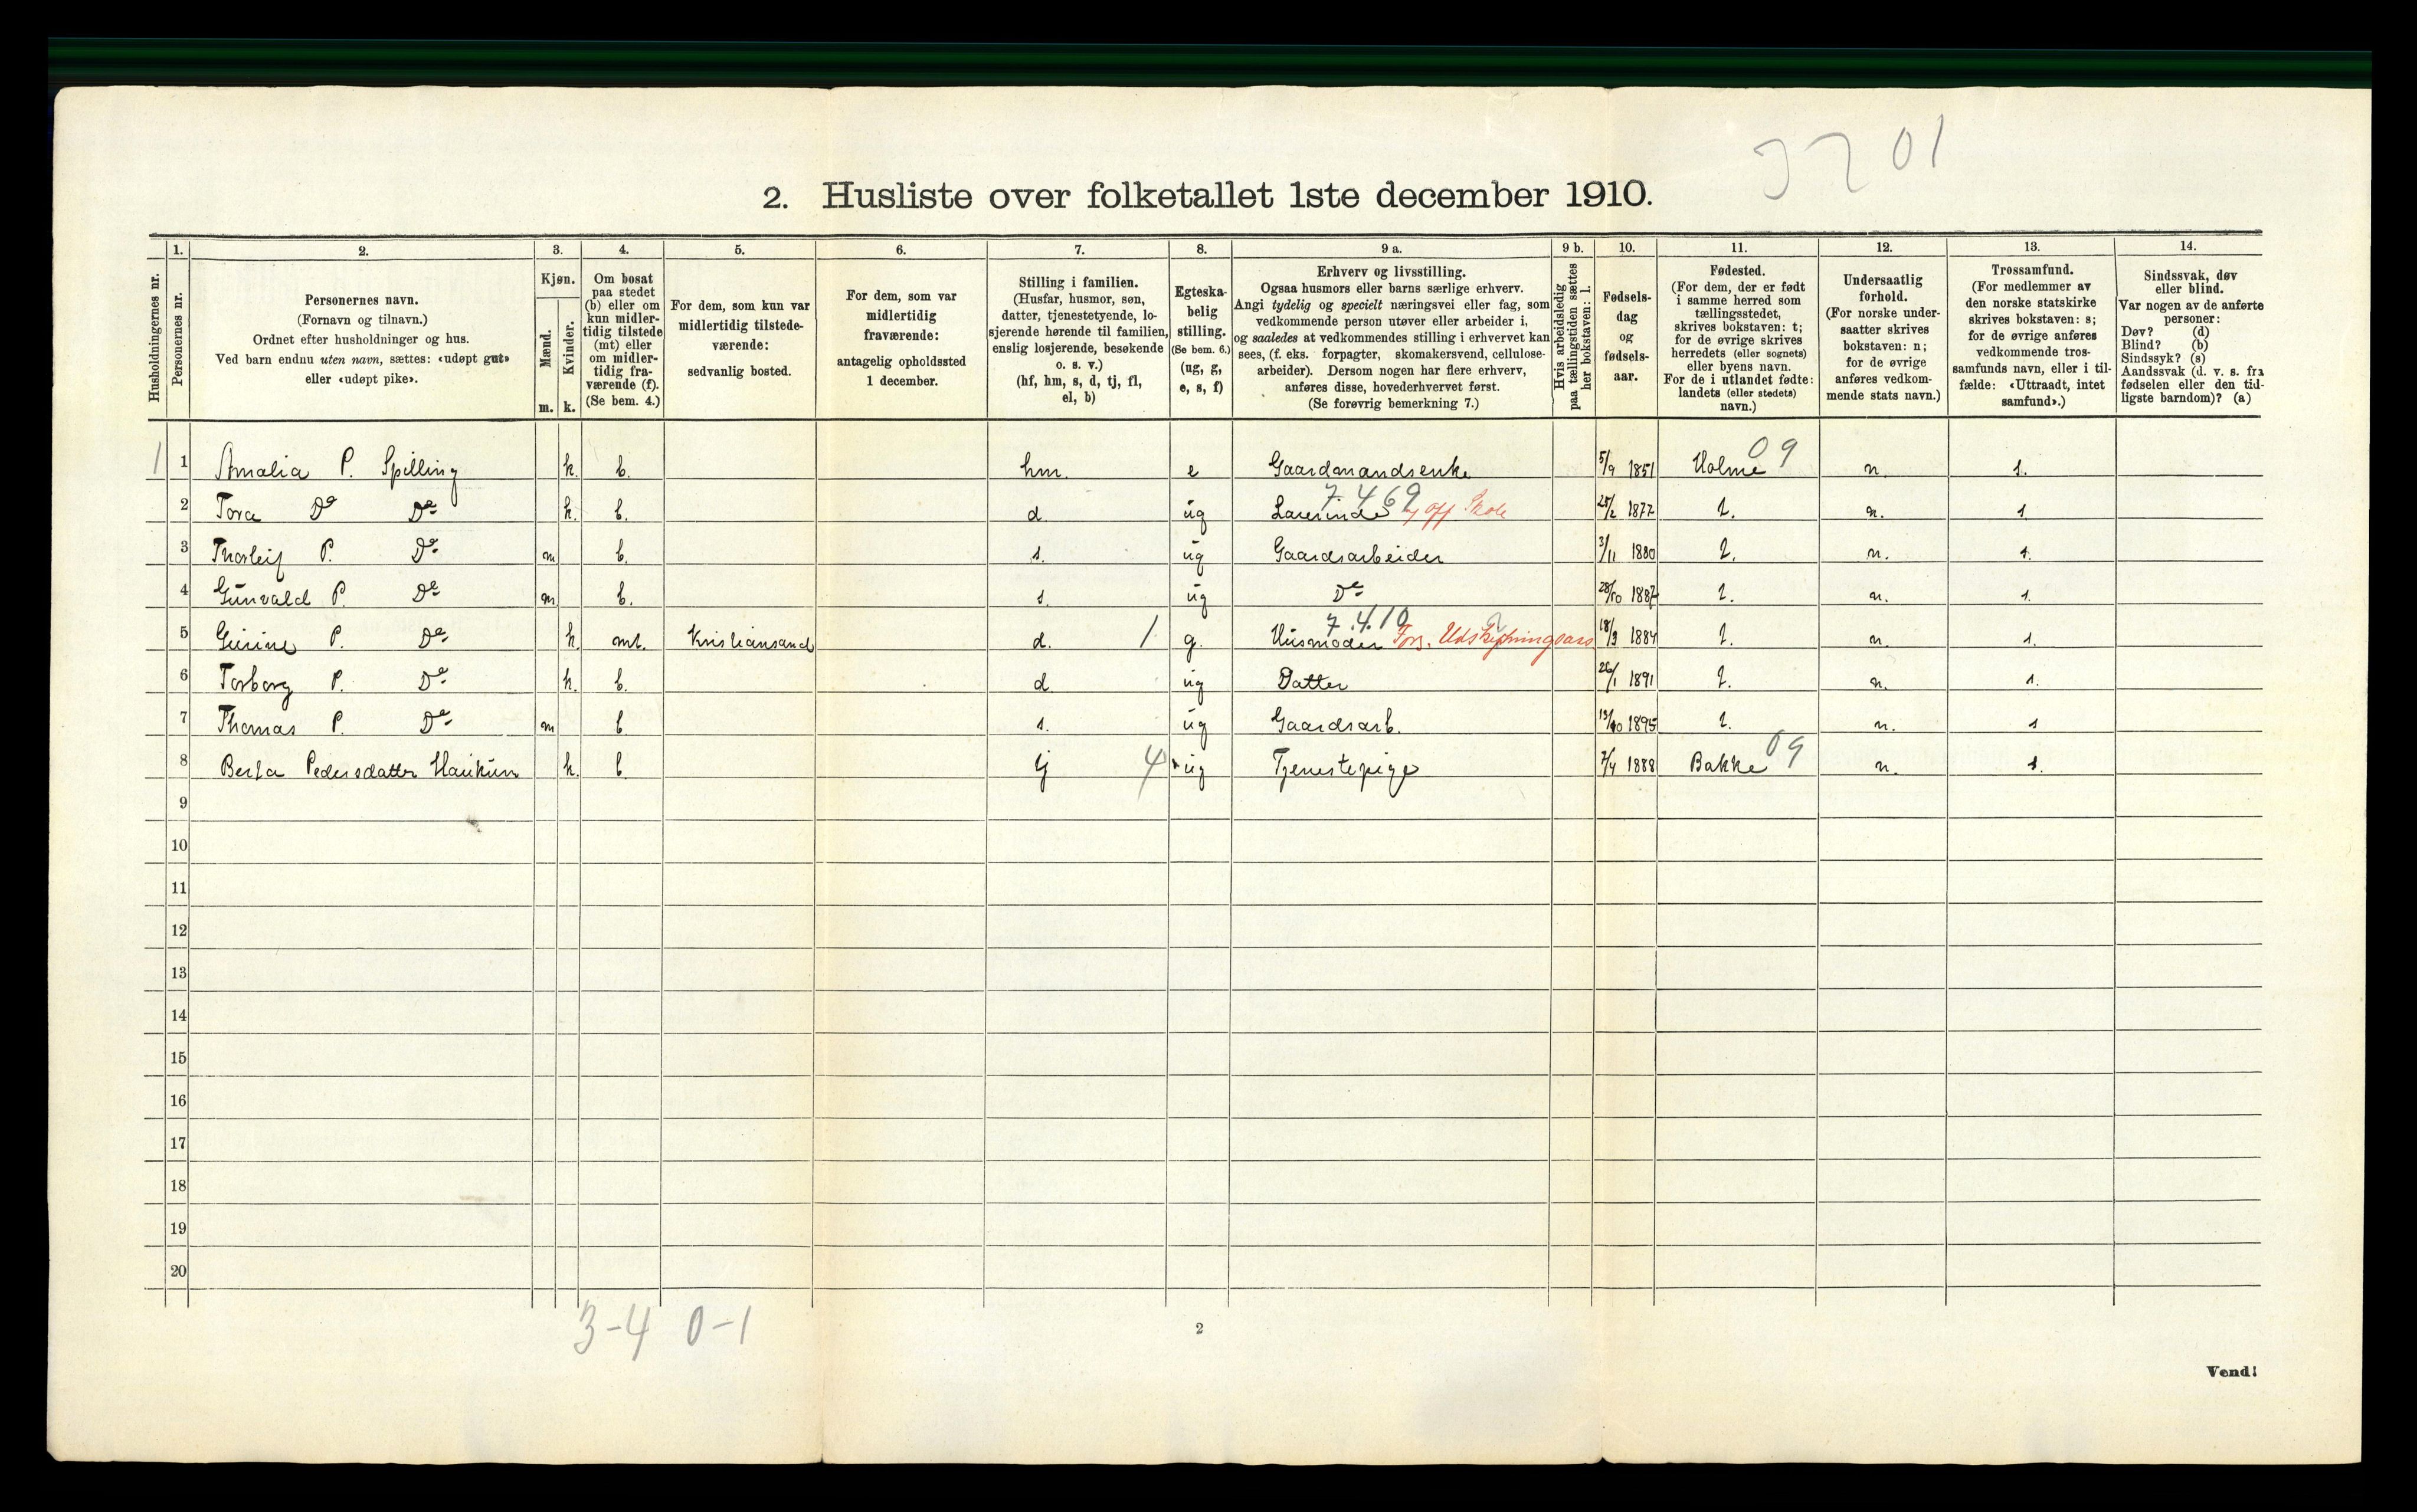 3201
2. Husliste over folketallet 1ste december 1910.
Husholdningernes nr.
1.
Personernes nr.
2.
Personernes navn.
(Fornavn og tilnavn.)
Ordnet efter husholdninger og hus.
Ved barn endnu uten navn, sættes: «udøpt gut»
eller «udøpt pike».
3.
Kjøn.
Mænd.
Kvinder.
m. k.
4.
Om bosat
paa stedet
(b) eller om
kun midler-
tidig tilstede
(mt) eller
om midler-
tidig fra-
værende (f).
(Se bem. 4.)
5.
For dem, som kun var
midlertidig tilstede-
værende:
sedvanlig bosted.
6.
For dem, som var
midlertidig
fraværende:
antagelig opholdssted
1 december.
7.
Stilling i familien.
(Husfar, husmor, søn,
datter, tjenestetyende, lo-
sjerende hørende til familien,
enslig losjerende, besøkende
o. s. v.)
(hf, hm, s, d, tj, fl,
el, b)
8.
Egteska-
belig
stilling.
(Se bem. 6.)
(ug, g,
e, s, f)
9 a.
Erhverv og livsstilling.
Ogsaa husmors eller barns særlige erhverv.
Angi tydelig og specielt næringsvei eller fag, som
vedkommende person utøver eller arbeider i,
og saaledes at vedkommendes stilling i erhvervet kan
sees, (f. eks. forpagter, skomakersvend, cellulose-
arbeider). Dersom nogen har flere erhverv,
anføres disse, hovederhvervet først.
(Se forøvrig bemerkning 7.)
9 b.
Hvis arbeidsledig
paa tællingstiden sættes
her bokstaven: l.
10.
Fødsels-
dag
og
fødsels-
aar.
11.
Fødested.
(For dem, der er født
i samme herred som
tællingsstedet,
skrives bokstaven: t;
for de øvrige skrives
herredets (eller sognets)
eller byens navn.
For de i utlandet fødte:
landets (eller stedets)
navn.)
12.
Undersaatlig
forhold.
(For norske under-
saatter skrives
bokstaven: n;
for de øvrige
anføres vedkom-
mende stats navn.)
13.
Trossamfund.
(For medlemmer av
den norske statskirke
skrives bokstaven: s;
for de øvrige anføres
vedkommende tros-
samfunds navn, eller i til-
fælde: «Uttraadt, intet
samfund».)
14.
Sindssvak, døv
eller blind.
Var nogen av de anførte
personer:
Døv? (d)
Blind? (b)
Sindssyk? (s)
Aandssvak (d. v. s. fra
fødselen eller den tid-
ligste barndom)? (a)
1 1 Amalia P. Spilling k. b. hm. e Gaardmandsenke 5/9 1851 Holme 09 n. s.
7.469
2 Tora Do Do k. b. d. ug Lærerinde off Skole 25/2 1877 t. n. s.
3 Thorleif P. Do m b. s. ug Gaardsarbeider 3/11 1880 t. n. s.
4 Gunvald P. Do m b. s. ug Do 28/10 1887 t. n. s.
7.4.10
5 Gurine P. Do k. mt. Kristiansand d. 1 g. Husmoder Fors. 18/9 1884 t. n. s.
6 Torborg P. Do k. b. d ug Datter 26/1 1891 t. n. s.
7 Thomas P. Do m b s. ug Gaardsarb. 13/10 1895 t. n. s
8 Berta Pedersdatter k. b tj 4 ug Tjenestepige 7/4 1888 Bakke 09 n. s.
9
10
11
12
13
14
15
16
17
18
19
20
3-4 0-1
2
Vend!